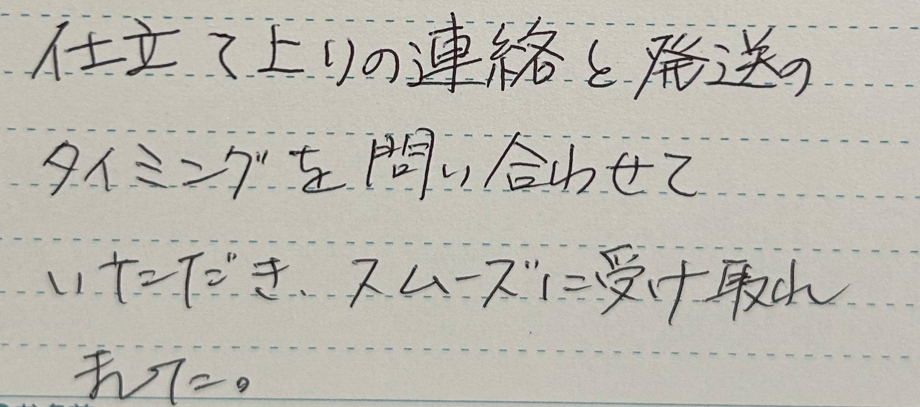 仕立て上りの連絡と発送の
タイミングを問い合わせて
いただき、スムーズに受け取れ
ました。